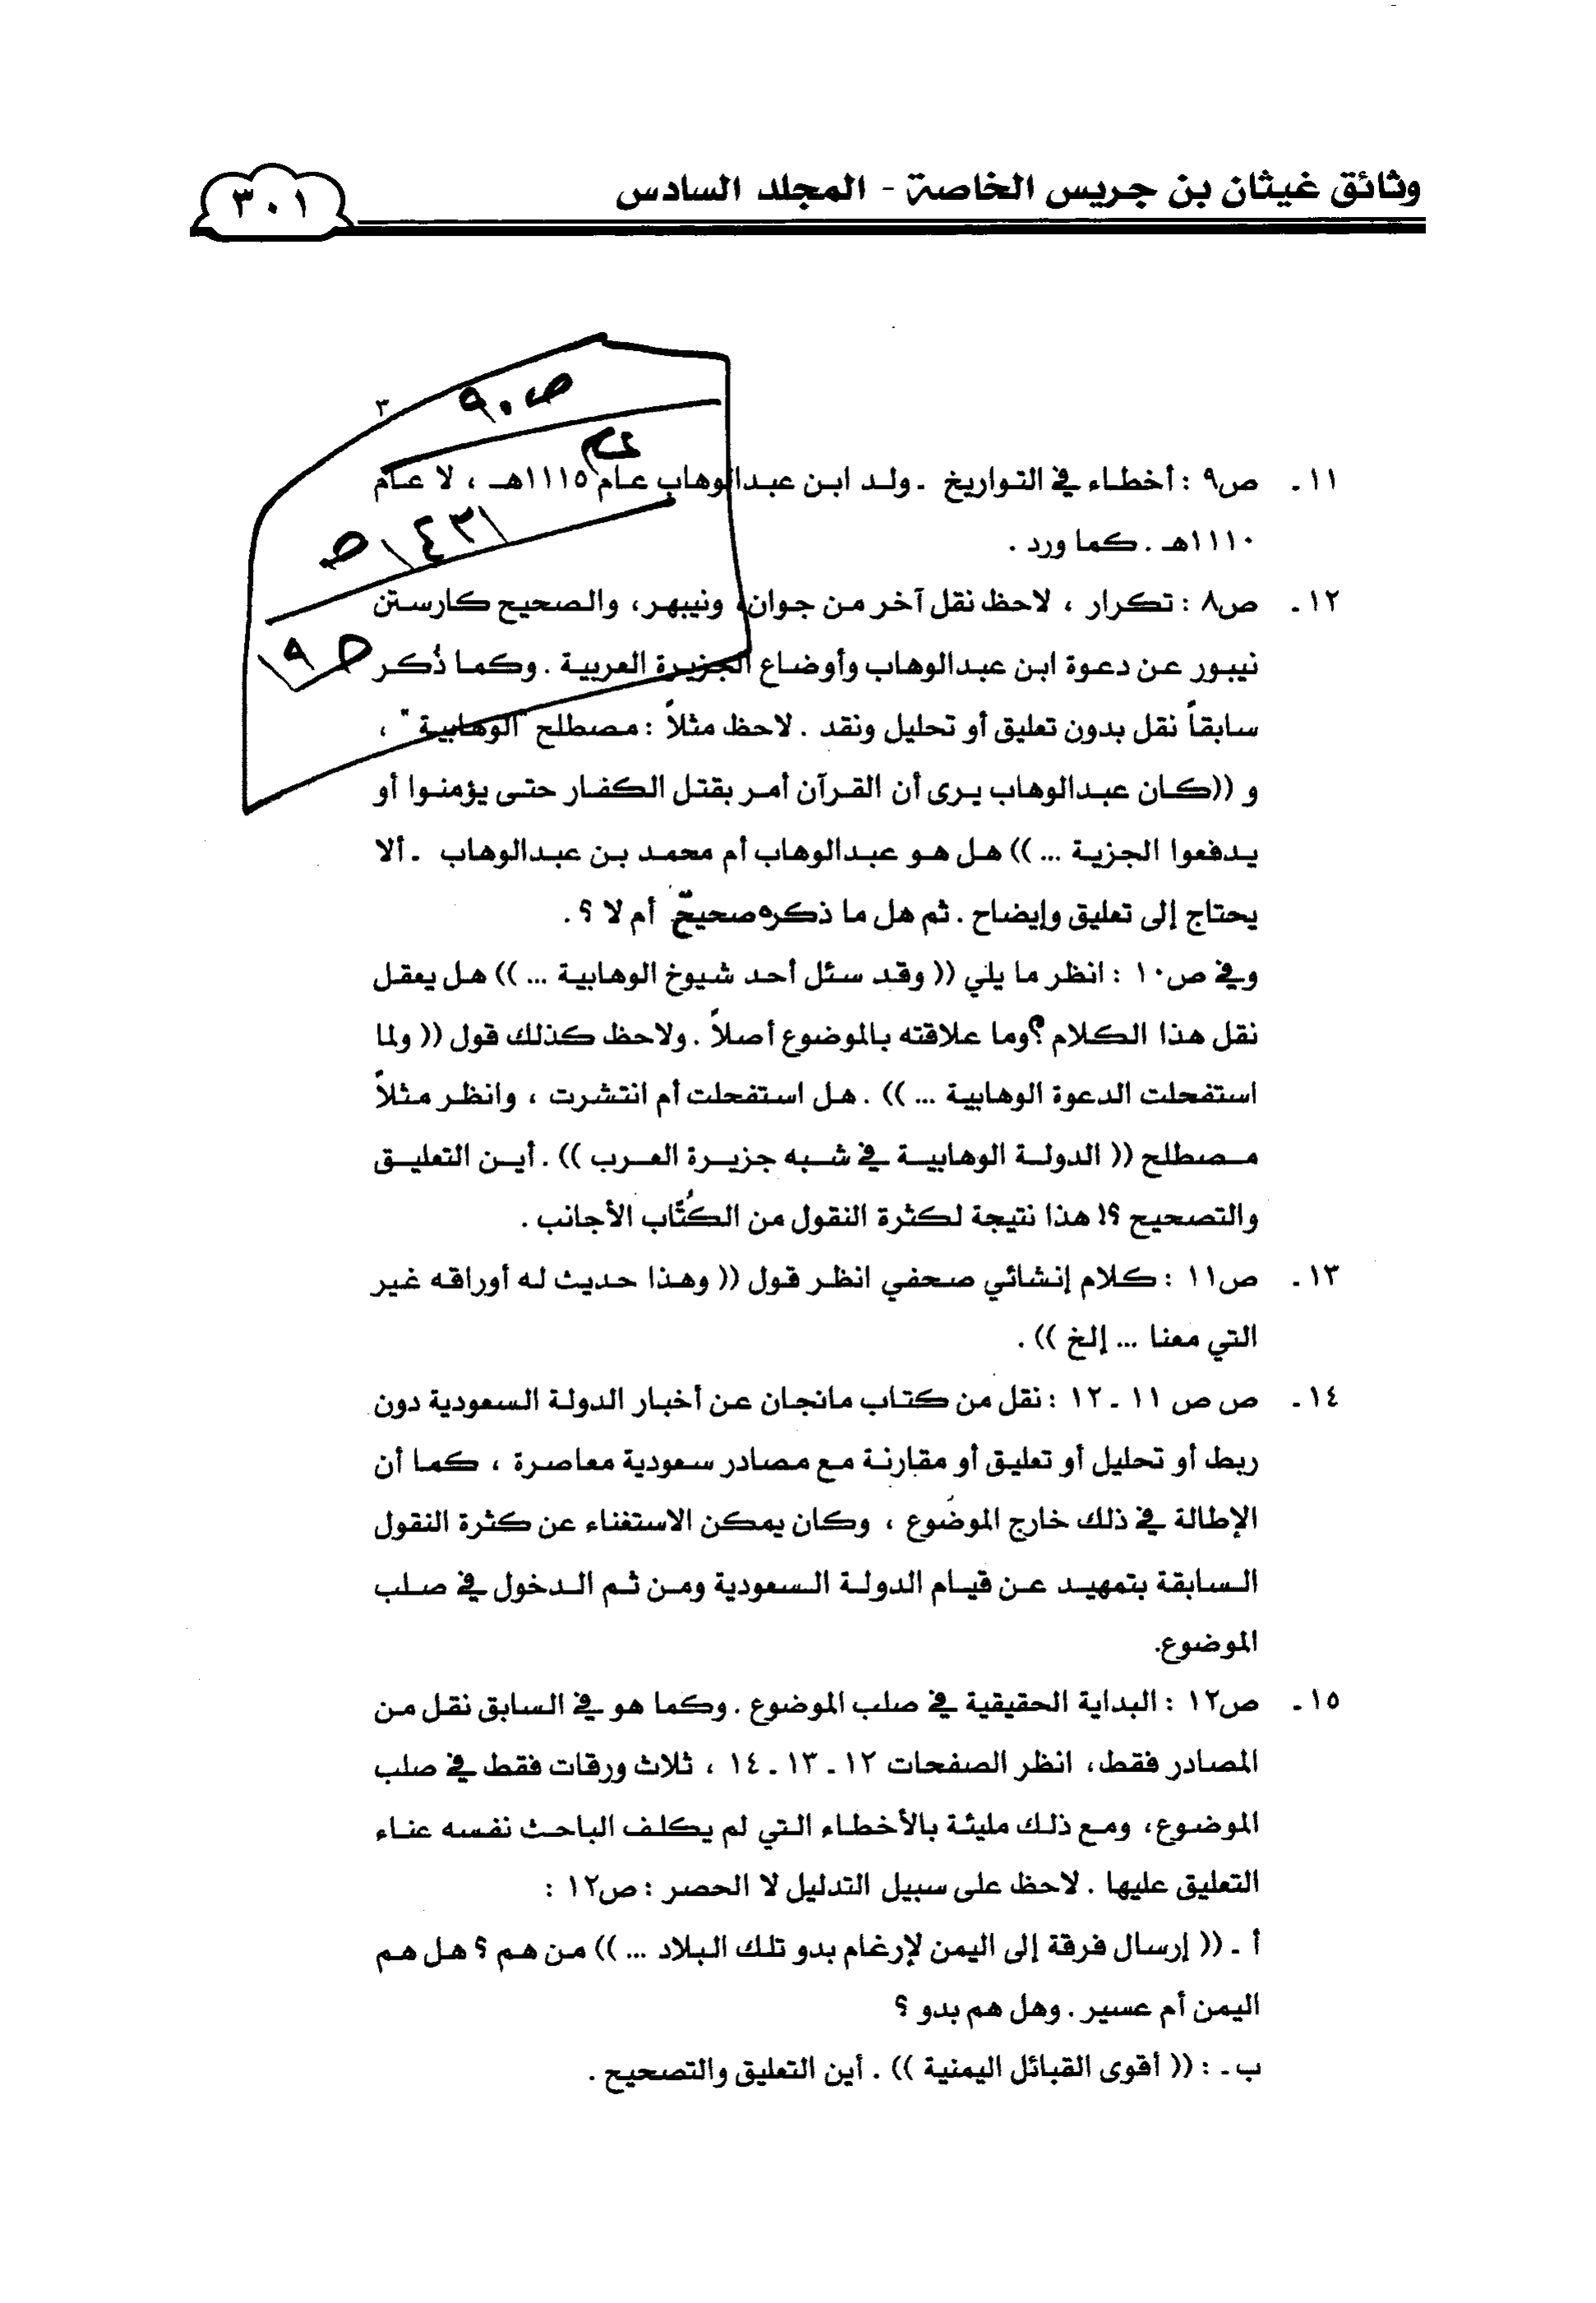 وثائق غيثان بن جريس الخاصة - المجلد السادس
٣٠١
٣
ص٩٠
عام
١٤٣١
ص
ص٩١
١١. ص٩ : أخطاء في التواريخ . ولد ابن عبدالوهاب عام ١١١٥هـ ، لا عام
١١١٠هـ . كما ورد .
١٢. ص٨ : تكرار ، لاحظ نقل آخر من جوان، ونيبهر، والصحيح كارستن
نيبور عن دعوة ابن عبدالوهاب وأوضاع الجزيرة العربية . وكما ذُكر
سابقاً نقل بدون تعليق أو تحليل ونقد . لاحظ مثلاً : مصطلح "الوهابية" ،
و ((كان عبدالوهاب يرى أن القرآن أمر بقتل الكفار حتى يؤمنوا أو
يدفعوا الجزية ... )) هل هو عبدالوهاب أم محمد بن عبدالوهاب . ألا
يحتاج إلى تعليق وإيضاح . ثم هل ما ذكره صحيح أم لا ؟ .
وفي ص١٠ : انظر ما يلي (( وقد سئل أحد شيوخ الوهابية ... )) هل يعقل
نقل هذا الكلام ؟ وما علاقته بالموضوع أصلاً . ولاحظ كذلك قول (( ولما
استفحلت الدعوة الوهابية ... )) . هل استفحلت أم انتشرت ، وانظر مثلاً
مصطلح (( الدولة الوهابية في شبه جزيرة العرب )) . أين التعليق
والتصحيح ؟! هذا نتيجة لكثرة النقول من الكُتَّاب الأجانب .
١٣. ص١١ : كلام إنشائي صحفي انظر قول (( وهذا حديث له أوراقه غير
التي معنا ... إلخ )) .
١٤. ص ص ١١ . ١٢ : نقل من كتاب مانجان عن أخبار الدولة السعودية دون
ربط أو تحليل أو تعليق أو مقارنة مع مصادر سعودية معاصرة ، كما أن
الإطالة في ذلك خارج الموضوع ، وكان يمكن الاستغناء عن كثرة النقول
السابقة بتمهيد عن قيام الدولة السعودية ومن ثم الدخول في صلب
الموضوع.
١٥. ص١٢ : البداية الحقيقية في صلب الموضوع . وكما هو في السابق نقل من
المصادر فقط، انظر الصفحات ١٢ . ١٣ . ١٤ ، ثلاث ورقات فقط في صلب
الموضوع، ومع ذلك مليئة بالأخطاء التي لم يكلف الباحث نفسه عناء
التعليق عليها . لاحظ على سبيل التدليل لا الحصر : ص١٢ :
أ . (( إرسال فرقة إلى اليمن لإرغام بدو تلك البلاد ... )) من هم ؟ هل هم
اليمن أم عسير . وهل هم بدو ؟
ب . : (( أقوى القبائل اليمنية )) . أين التعليق والتصحيح .